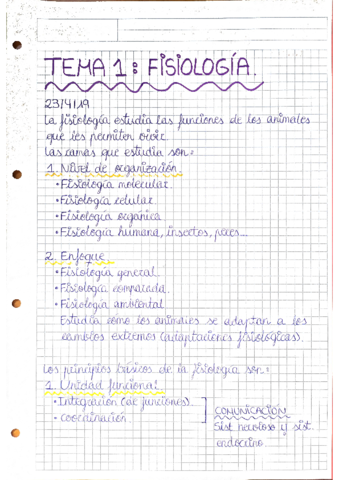 TEMA 1: FISIOLOGÍA.
23/4/19
La fisiología estudia las funciones de los animales
que les permiten vivir.
Las ramas que estudia son:
1. Nivel de organización.
• Fisiología molecular
• Fisiología celular
• Fisiología orgánica
• Fisiología humana, insectos, peces...
2. Enfoque.
• Fisiología general.
• Fisiología comparada.
• Fisiología ambiental
Estudia como los animales se adaptan a los
cambios extremos (adaptaciones fisiológicas).
Los principios básicos de la fisiología son:
1. Unidad funcional
• Integración (de funciones).
• Coordinación
COMUNICACIÓN
Sist nervioso y sist.
endocrino